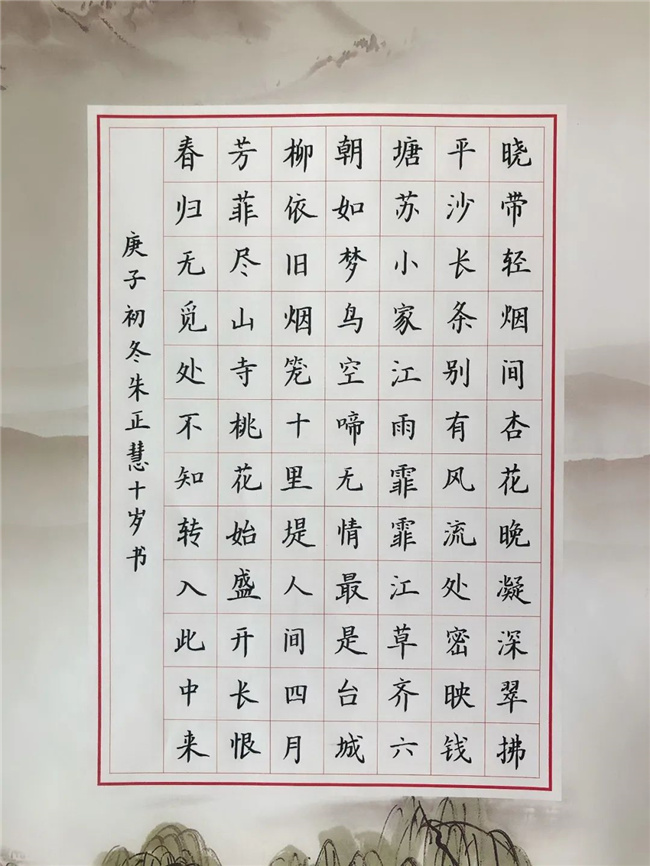 晓带轻烟间杏花晚凝深翠拂
平沙长条别有风流处密映钱
塘苏小家江雨霏霏江草齐六
朝如梦鸟空啼无情最是台城
柳依旧烟笼十里堤人间四月
芳菲尽山寺桃花始盛开长恨
春归无觅处不知转入此中来
庚子初冬朱正慧十岁书